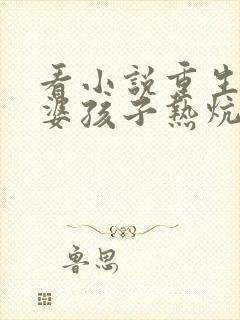 看小説重生
婆孩子熱炕
魯思